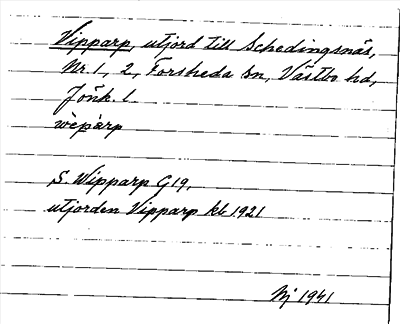 Vipparp, utjord till Schedingsnäs,
Nr. 1, 2, Forsheda sn, Västbo hd,
Jönk. l.
vèpàrp
S. Wipparp G19,
utjorden Vipparp kb 1921
Mj 1941